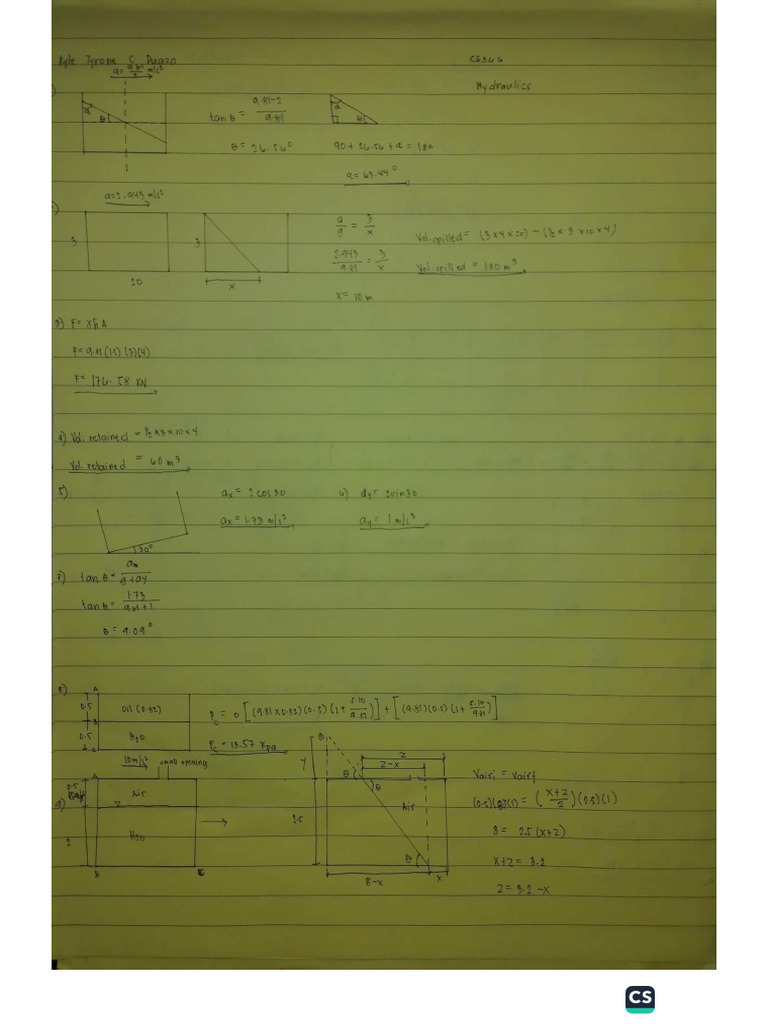 Kyle Tyrone C. Duazo
CE366
Hydraulics
a = 9.81/2 m/s²
a
θ
tan θ = 9.81÷2 / 9.81
θ = 26.56°
a
θ
90 + 26.56 + a = 180
a = 63.44°
a = 2.943 m/s²
3
20
3
x
a/g = 3/x
2.943/9.81 = 3/x
x = 10 m
Vol. spilled = (3 x 4 x 20) - (½ x 3 x 10 x 4)
Vol. spilled = 180 m³
3) F = γh̄A
F = 9.81 (1.5) (3)(4)
F = 176.58 kN
4) Vol. retained = ½ x 3 x 10 x 4
Vol. retained = 60 m³
5)
30°
ax = 2 cos 30
ax = 1.73 m/s²
6) ay = 2 sin 30
ay = 1 m/s²
tan θ = ax / g + ay
tan θ = 1.73 / 9.81 + 1
θ = 9.09°
8)
A
0.5
Oil (0.82)
B
0.5
H₂O
C
Pc = 0 [(9.81 x 0.82)(0.5)(1 + 5.10/9.81)] + [(9.81)(0.5)(1 + 5.10/9.81)]
Pc = 13.57 kPa
9)
10 m/s²
small opening
A
0.5
Air
2
H₂O
B
C
y
θ
z
z - x
θ
θ
Air
2.5
θ
8 - x
x
Vairi = Vairf
= (x + z / 2)(2.5)(1)
8 = 2.5 (x + z)
x + z = 3.2
z = 3.2 - x
CS